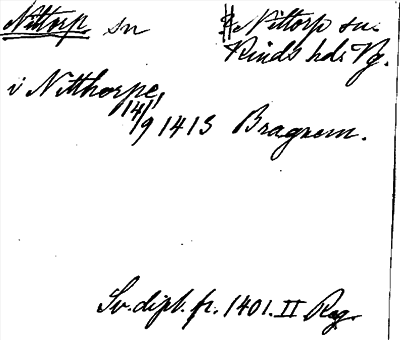 Nittorp sn
Nittorp sn.
Kinds hds Vg.
i Nitthorpe,
14/9 1413 Bragnem.
Sv. dipl. fr. 1401. II Reg.